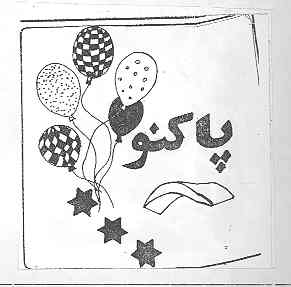 پاکنو